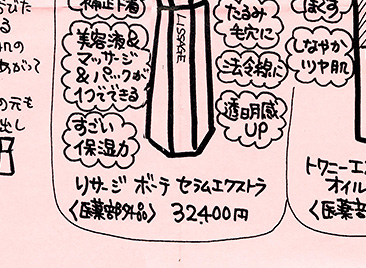 補正下着
美容液&
マッサージ
&パックが
1つでできる
すごい
保湿力
LISSAGE
たるみ
毛穴に
法令線に
透明感
UP
リサージ ボーテ セラムエクストラ
〈医薬部外品〉 32,400円
ほぐす
しなやか
ツヤ肌
トワニーエ
オイル
〈医薬部
びた
る
肌の
あがって
の元も
出し